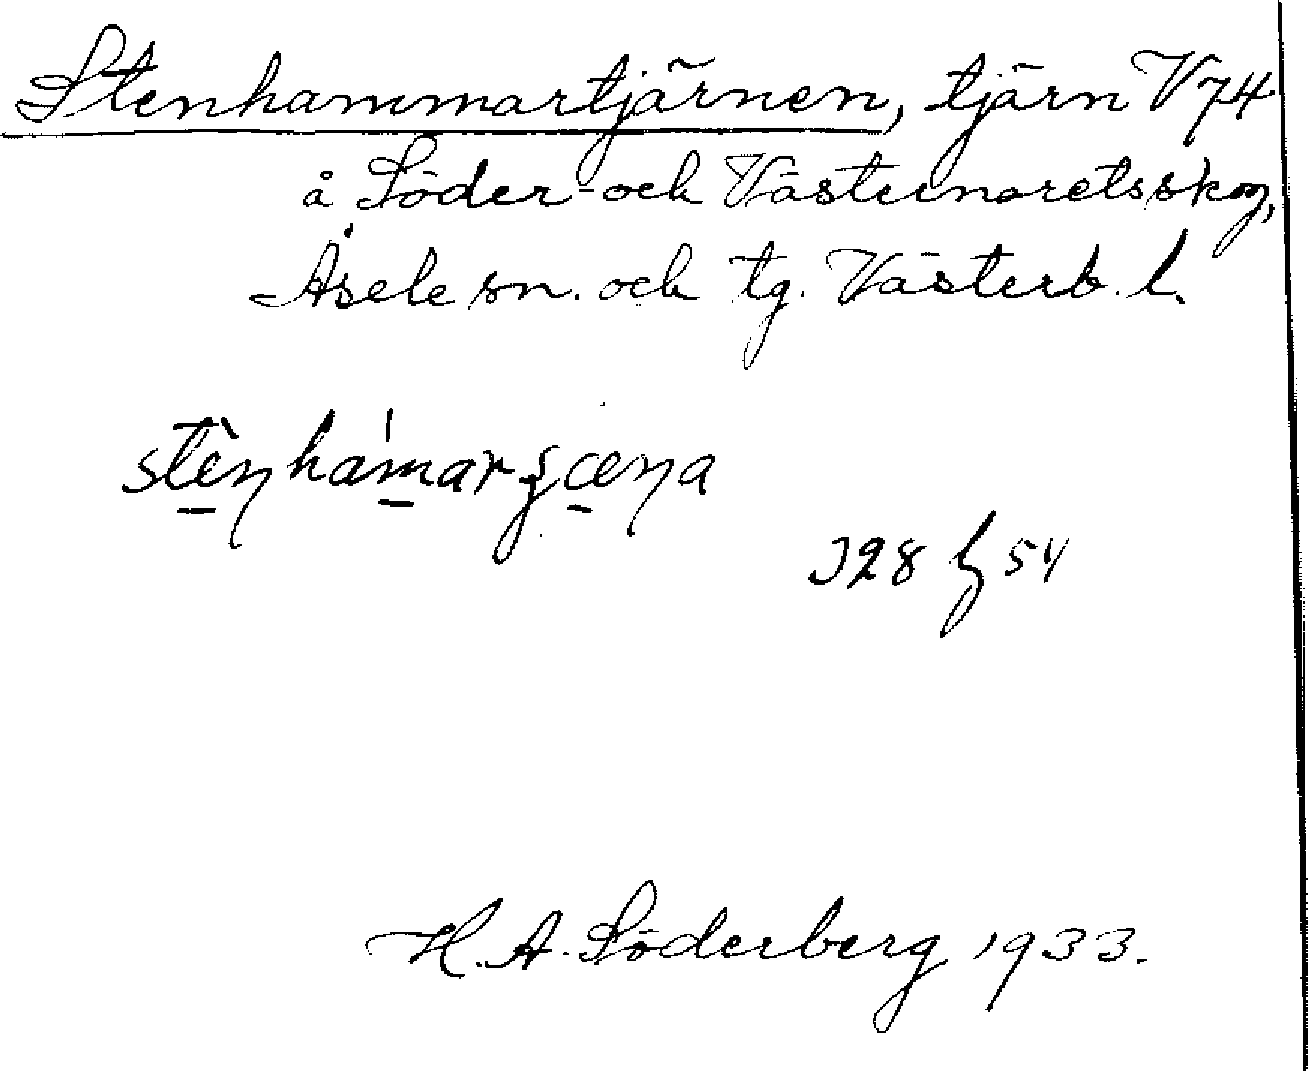 Stenhammartjärnen, tjärn V74
å Söder- och Västernoretsskog,
Åsele sn. och tg. Västerb. l.
J28 h 54
H. A. Söderberg 1933.